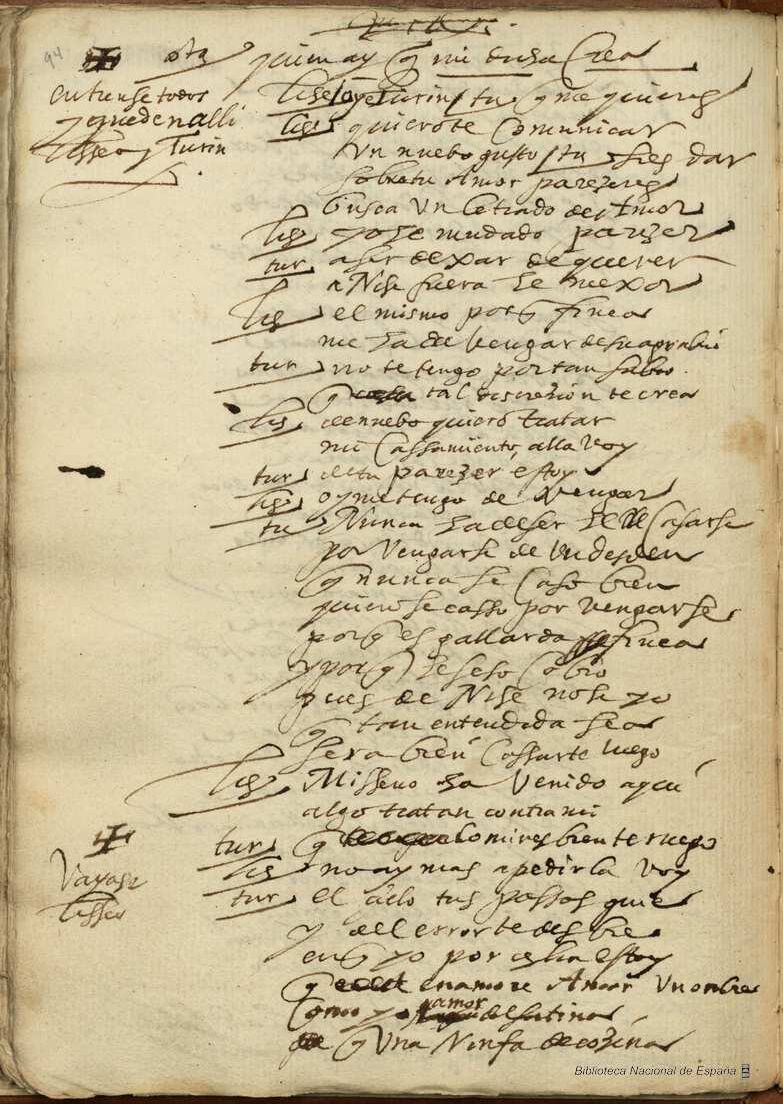 94
ota quien ay q mi dicha Crea
entrense todos
y queden alli
lisseo y Turin
lise oye Turin tu q me quieres
lis quierote Comunicar
Un nuebo gusto tu si es dar
sobre tu Amor parezeres
busca Un letrado de Amor
lis yo he mudado parezer
tur a ser dexar de querer
a Nise fuera el mexor
lis el mismo porq finea
me ha de Vengar de su agrabio
tur no te tengo por tan sabio
q tal discrezion te crea
lis de nuebo quiero tratar
mi Cassamiento alla Voy
tur de tu parezer estoy
lis oy me tengo de Vengar
tu Nunca ha de ser el Casarse
por Vengarse de Un desden
q nunca se Caso bien
quien se casso por Vengarse
porq es gallarda finea
y porq el seso Cobro
pues de Nise no se yo
q tan entendida sea
sera bien Cassarte luego
lis Misseno ha Venido aqui
algo tratan contra mi
tur q lo mires bien te ruego
lis no ay mas a pedirla Voy
Vayase
lisseo
tur el cielo tus passos guie
y del error te desbie
en q yo por celia estoy
q enamore Amor Un onbre
Como yo amor desatina
q Una Ninfa de cozina
Biblioteca Nacional de España